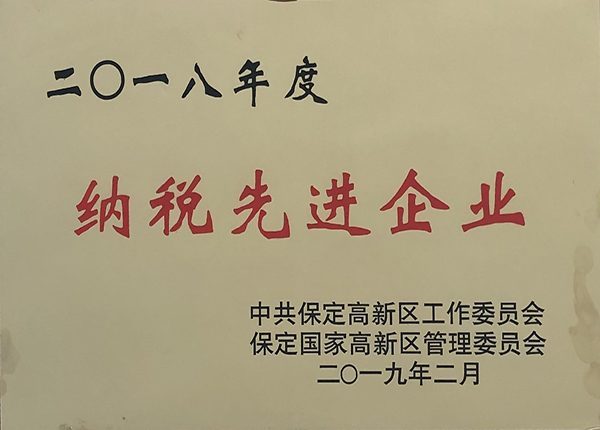 二〇一八年度
纳税先进企业
中共保定高新区工作委员会
保定国家高新区管理委员会
二〇一九年二月